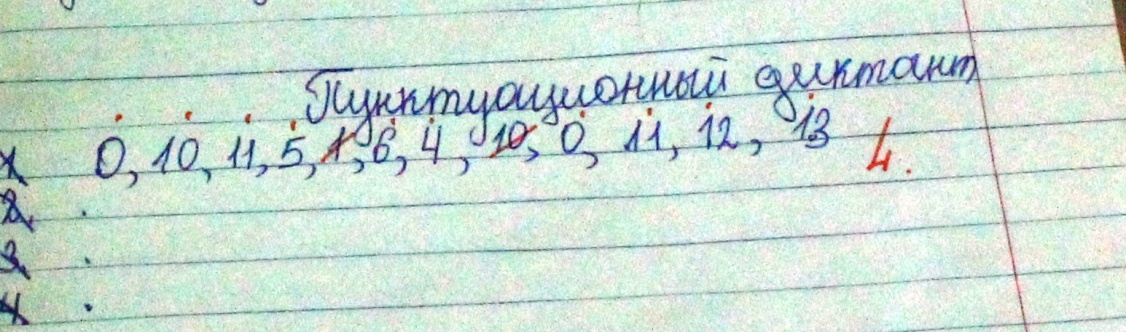 Пунктуационный диктант
1 0, 10, 11, 5, 1, 6, 4, 10, 0, 11, 12, 13 4.
2 .
3 .
4 .